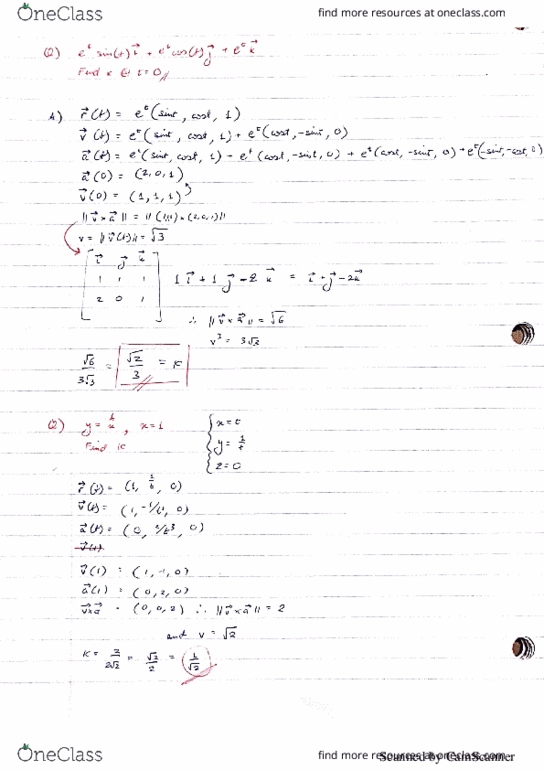 OneClass
find more resources at oneclass.com
Q) e^t sin(t) i⃗ + e^t cos(t) j⃗ + e^t k⃗
Find κ @ t=0
A) r⃗(t) = e^t(sint, cost, 1)
v⃗(t) = e^t(sint, cost, 1) + e^t(cost, -sint, 0)
a⃗(t) = e^t(sint, cost, 1) + e^t(cost, -sint, 0) + e^t(cost, -sint, 0) + e^t(-sint, -cost, 0)
a⃗(0) = (2, 0, 1)
v⃗(0) = (1, 1, 1)
||v⃗ × a⃗|| = ||(1,1,1) × (2,0,1)||
v = ||v⃗(t)|| = √3
i⃗ j⃗ k⃗
1 1 1 1 i⃗ + 1 j⃗ - 2 k⃗ = i⃗ + j⃗ - 2k⃗
2 0 1
∴ ||v⃗ × a⃗|| = √6
v³ = 3√3
√6/3√3 = √2/3 = κ
Q) y = 1/x, x=1
Find κ
x=t
y= 1/t
z=0
r⃗(t) = (t, 1/t, 0)
v⃗(t) = (1, -1/t², 0)
a⃗(t) = (0, 2/t³, 0)
v⃗(1) = (1, -1, 0)
a⃗(1) = (0, 2, 0)
v⃗×a⃗ = (0, 0, 2) ∴ ||v⃗ × a⃗|| = 2
and v = √2
κ = 2/2√2 = √2/2 = 1/√2
OneClass
find more resources at oneclass.com
Scanned by CamScanner